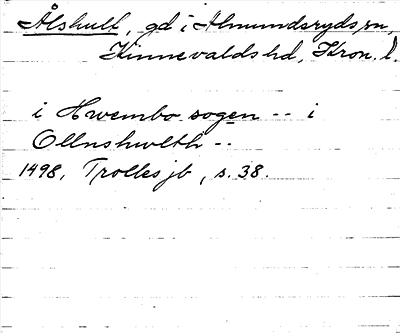 Ålshult, gd i Almundsryds sn,
Kinnevalds hd, Kron. l.
i Hwembo sogen -- i
Ollnshwlth --
1498. Trolles jb, s. 38.